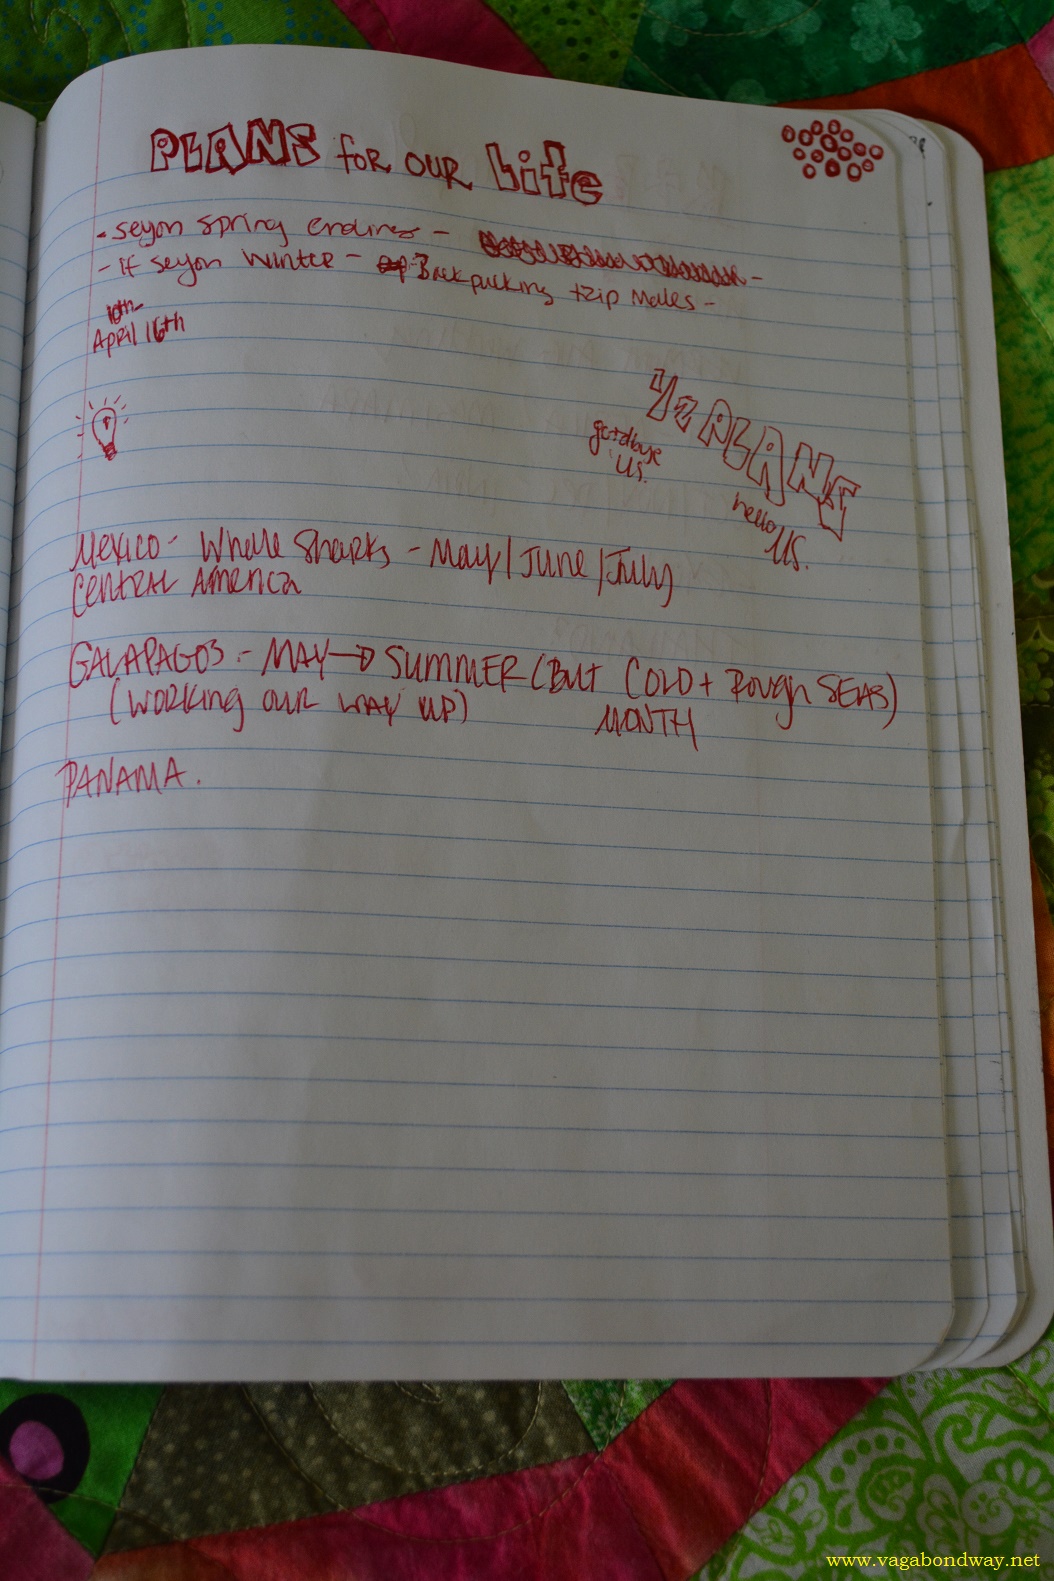 PLANS for our Life
- seyon spring endines -
- if seyon winter - Backpacking trip Males -
10th
April 16th
Ye PLANS
goodbye
US.
hello
US.
Mexico - Whale Sharks - May/June/July
Central America
GALAPAGOS - MAY → SUMMER (BUT COLD + Rough SEAS)
(WORKING OUR WAY UP) MONTH
PANAMA.
www.vagabondway.net